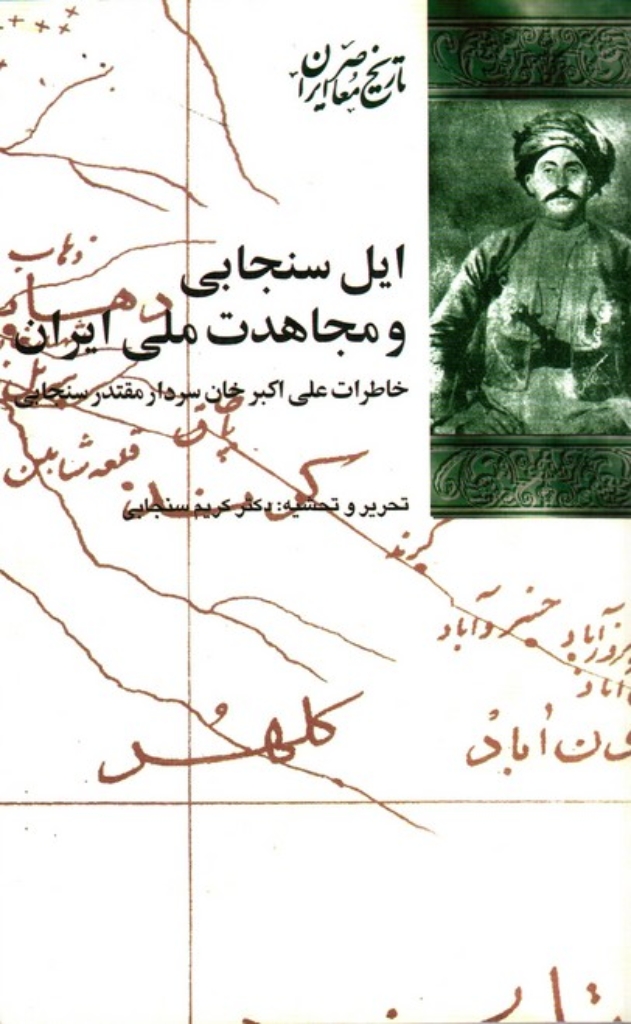 تاریخ معاصر ایران
ایل سنجابی
و مجاهدت ملی ایران
خاطرات علی اکبر خان سردار مقتدر سنجابی
تحریر و تحشیه: دکتر کریم سنجابی
ذهاب
قلعه شاهین
کرند
خسروآباد
آباد
کلهر